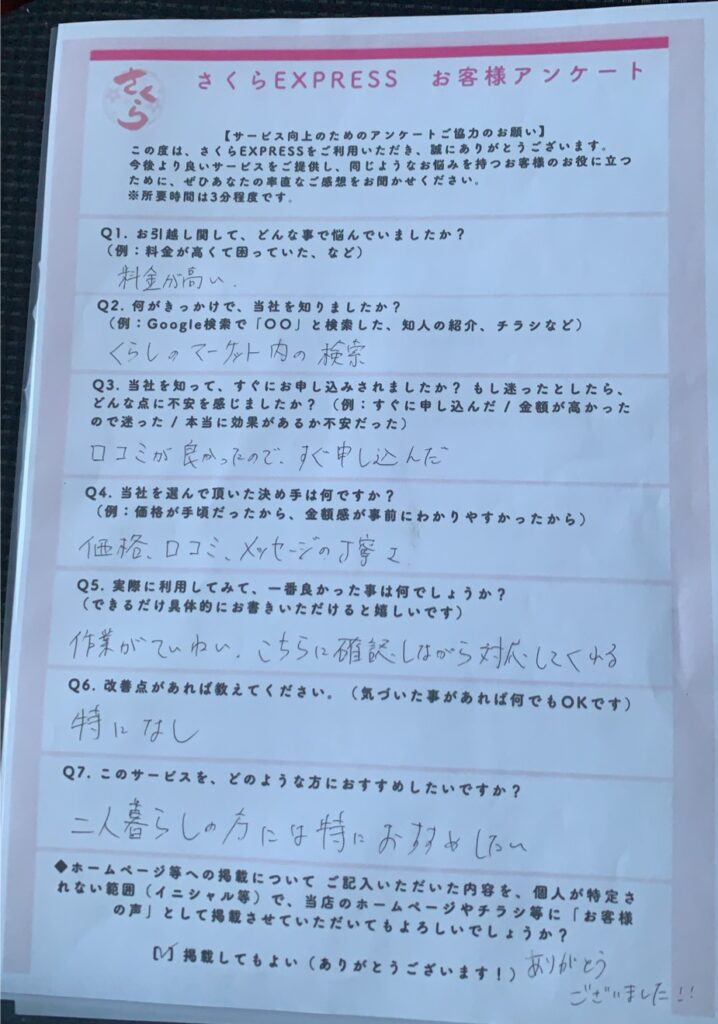 さくら
さくらEXPRESS お客様アンケート
【サービス向上のためのアンケートご協力のお願い】
この度は、さくらEXPRESSをご利用いただき、誠にありがとうございます。
今後より良いサービスをご提供し、同じようなお悩みを持つお客様のお役に立つ
ために、ぜひあなたの率直なご感想をお聞かせください。
※所要時間は3分程度です。
Q1. お引越し関して、どんな事で悩んでいましたか？
（例：料金が高くて困っていた、など）
料金が高い.
Q2. 何がきっかけで、当社を知りましたか？
（例：Google検索で「〇〇」と検索した、知人の紹介、チラシなど）
くらしのマーケット内の検索
Q3. 当社を知って、すぐにお申し込みされましたか？ もし迷ったとしたら、
どんな点に不安を感じましたか？ （例：すぐに申し込んだ / 金額が高かった
ので迷った / 本当に効果があるか不安だった）
口コミが良かったので、すぐ申し込んだ
Q4. 当社を選んで頂いた決め手は何ですか？
（例：価格が手頃だったから、金額感が事前にわかりやすかったから）
価格、口コミ、メッセージの丁寧さ
Q5. 実際に利用してみて、一番良かった事は何でしょうか？
（できるだけ具体的にお書きいただけると嬉しいです）
作業がていねい. こちらに確認しながら対応してくれる
Q6. 改善点があれば教えてください。（気づいた事があれば何でもOKです）
特になし
Q7. このサービスを、どのような方におすすめしたいですか？
二人暮らしの方には特におすすめしたい
◆ホームページ等への掲載について ご記入いただいた内容を、個人が特定さ
れない範囲（イニシャル等）で、当店のホームページやチラシ等に「お客様
の声」として掲載させていただいてもよろしいでしょうか？
[✓] 掲載してもよい（ありがとうございます！） ありがとう
ございました!!